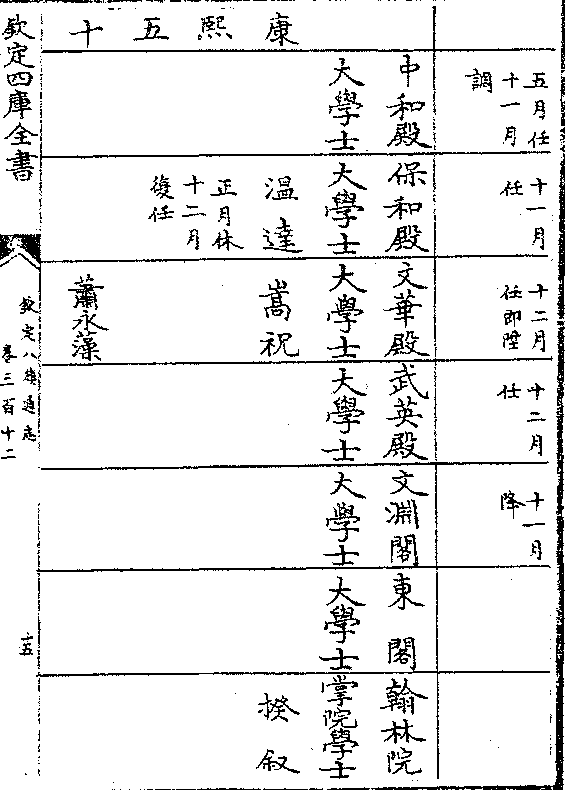 五月任
十一月
調
十一月
任
十二月
任即陞
十二月
任
十一月
降
康熙五十
中和殿
大學士
保和殿
大學士
溫達
正月休
十二月
復任
文華殿
大學士
嵩祝
蕭永藻
武英殿
大學士
文淵閣
大學士
東閣
大學士
翰林院
掌院學士
揆敘
欽定四庫全書
欽定八旗通志
卷三百十二
十五